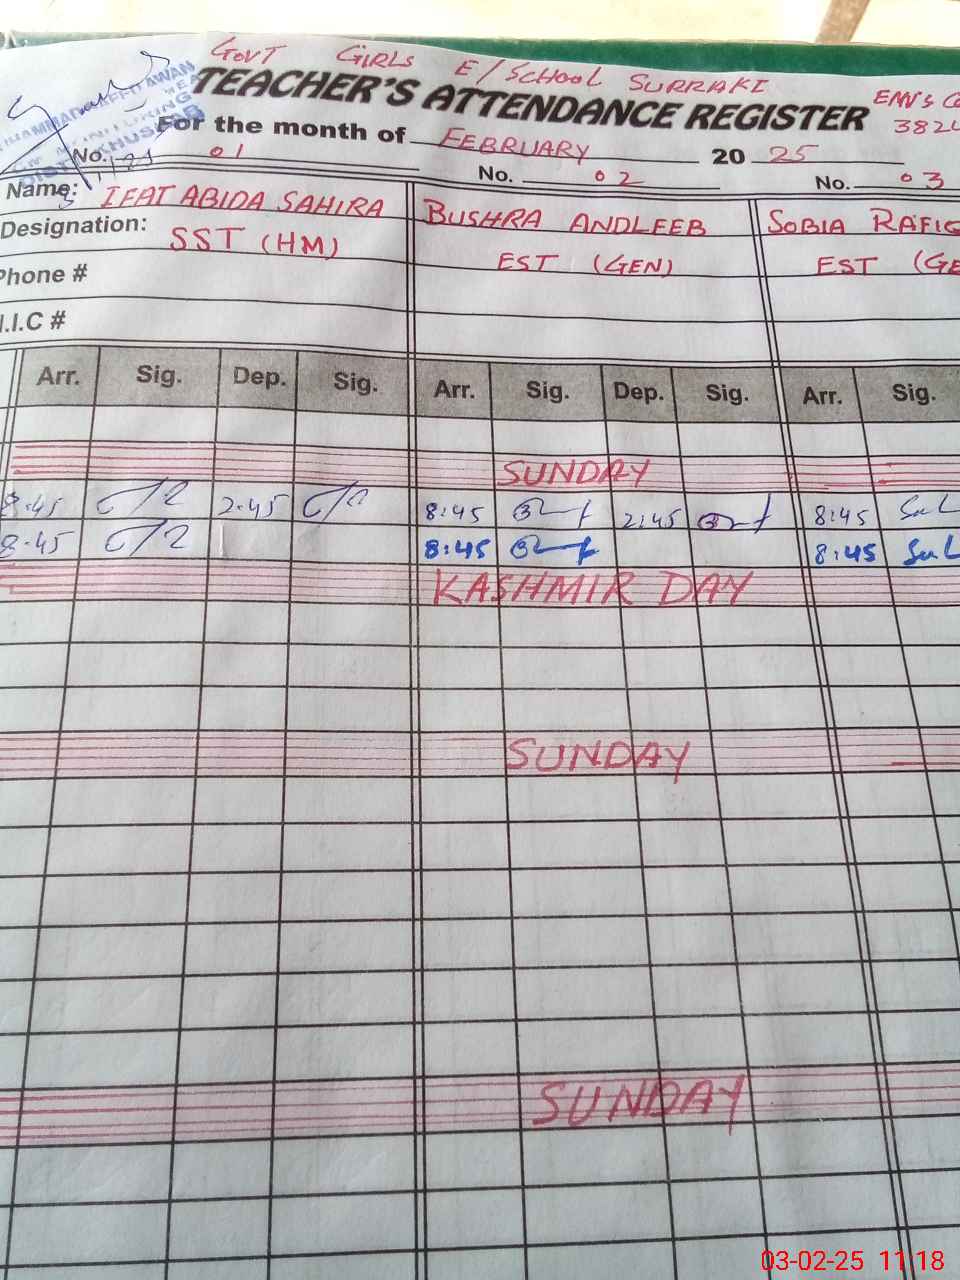 GOVT GIRLS E/SCHOOL SURRAKI
TEACHER'S ATTENDANCE REGISTER
EMIS C
382
For the month of FEBRUARY 20 25
No. 01 No. 02 No. 03
Name: IFAT ABIDA SAHIRA BUSHRA ANDLEEB SOBIA RAFIQ
Designation: SST (HM) EST (GEN) EST (GE
Phone #
I.I.C #
Arr. Sig. Dep. Sig. Arr. Sig. Dep. Sig. Arr. Sig.
SUNDAY
8:45 2:45 8:45 2:45 8:45
8:45 8:45 8:45
KASHMIR DAY
SUNDAY
SUNDAY
03-02-25 11:18